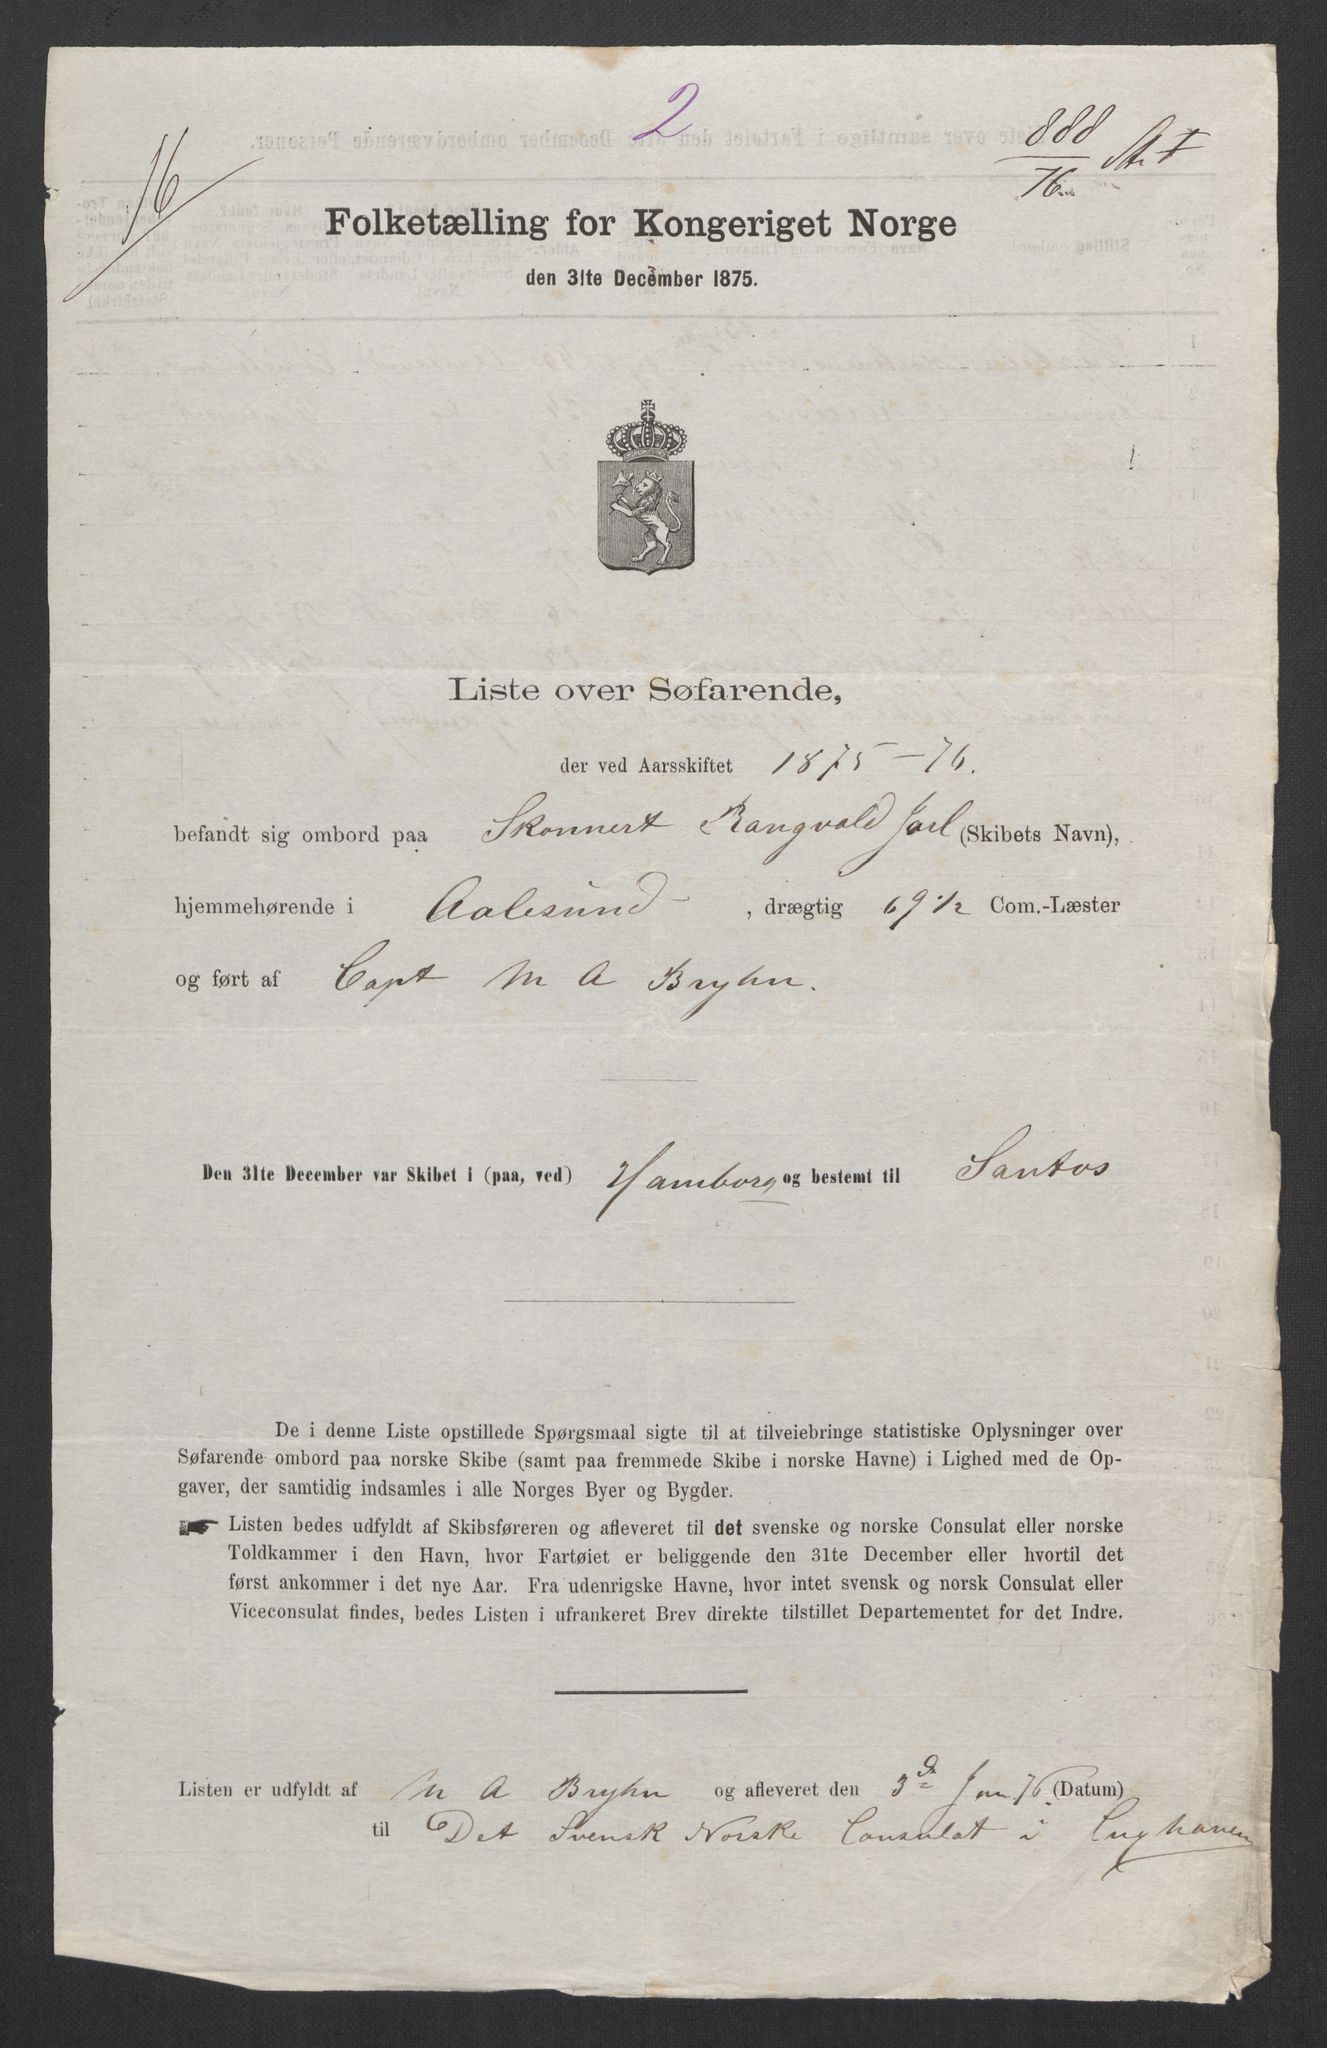 2
16
888
76
Folketælling for Kongeriget Norge
den 31te December 1875.
Liste over Søfarende,
der ved Aarsskiftet 1875-76.
befandt sig ombord paa Skonnert Rangvald Jarl (Skibets Navn),
hjemmehørende i Aalesund, drægtig 69 1/2 Com.-Læster
og ført af Capt M A Bryhn.
Den 31te December var Skibet i (paa, ved) Hamborg og bestemt til Santos
De i denne Liste opstillede Spørgsmaal sigte til at tilveiebringe statistiske Oplysninger over
Søfarende ombord paa norske Skibe (samt paa fremmede Skibe i norske Havne) i Lighed med de Op-
gaver, der samtidig indsamles i alle Norges Byer og Bygder.
Listen bedes udfyldt af Skibsføreren og afleveret til det svenske og norske Consulat eller norske
Toldkammer i den Havn, hvor Fartøiet er beliggende den 31te December eller hvortil det
først ankommer i det nye Aar. Fra udenrigske Havne, hvor intet svensk og norsk Consulat eller
Viceconsulat findes, bedes Listen i ufrankeret Brev direkte tilstillet Departementet for det Indre.
Listen er udfyldt af M A Bryhn og afleveret den 3d Jan 76 (Datum)
til Det Svensk Norske Consulat i Cuxhaven